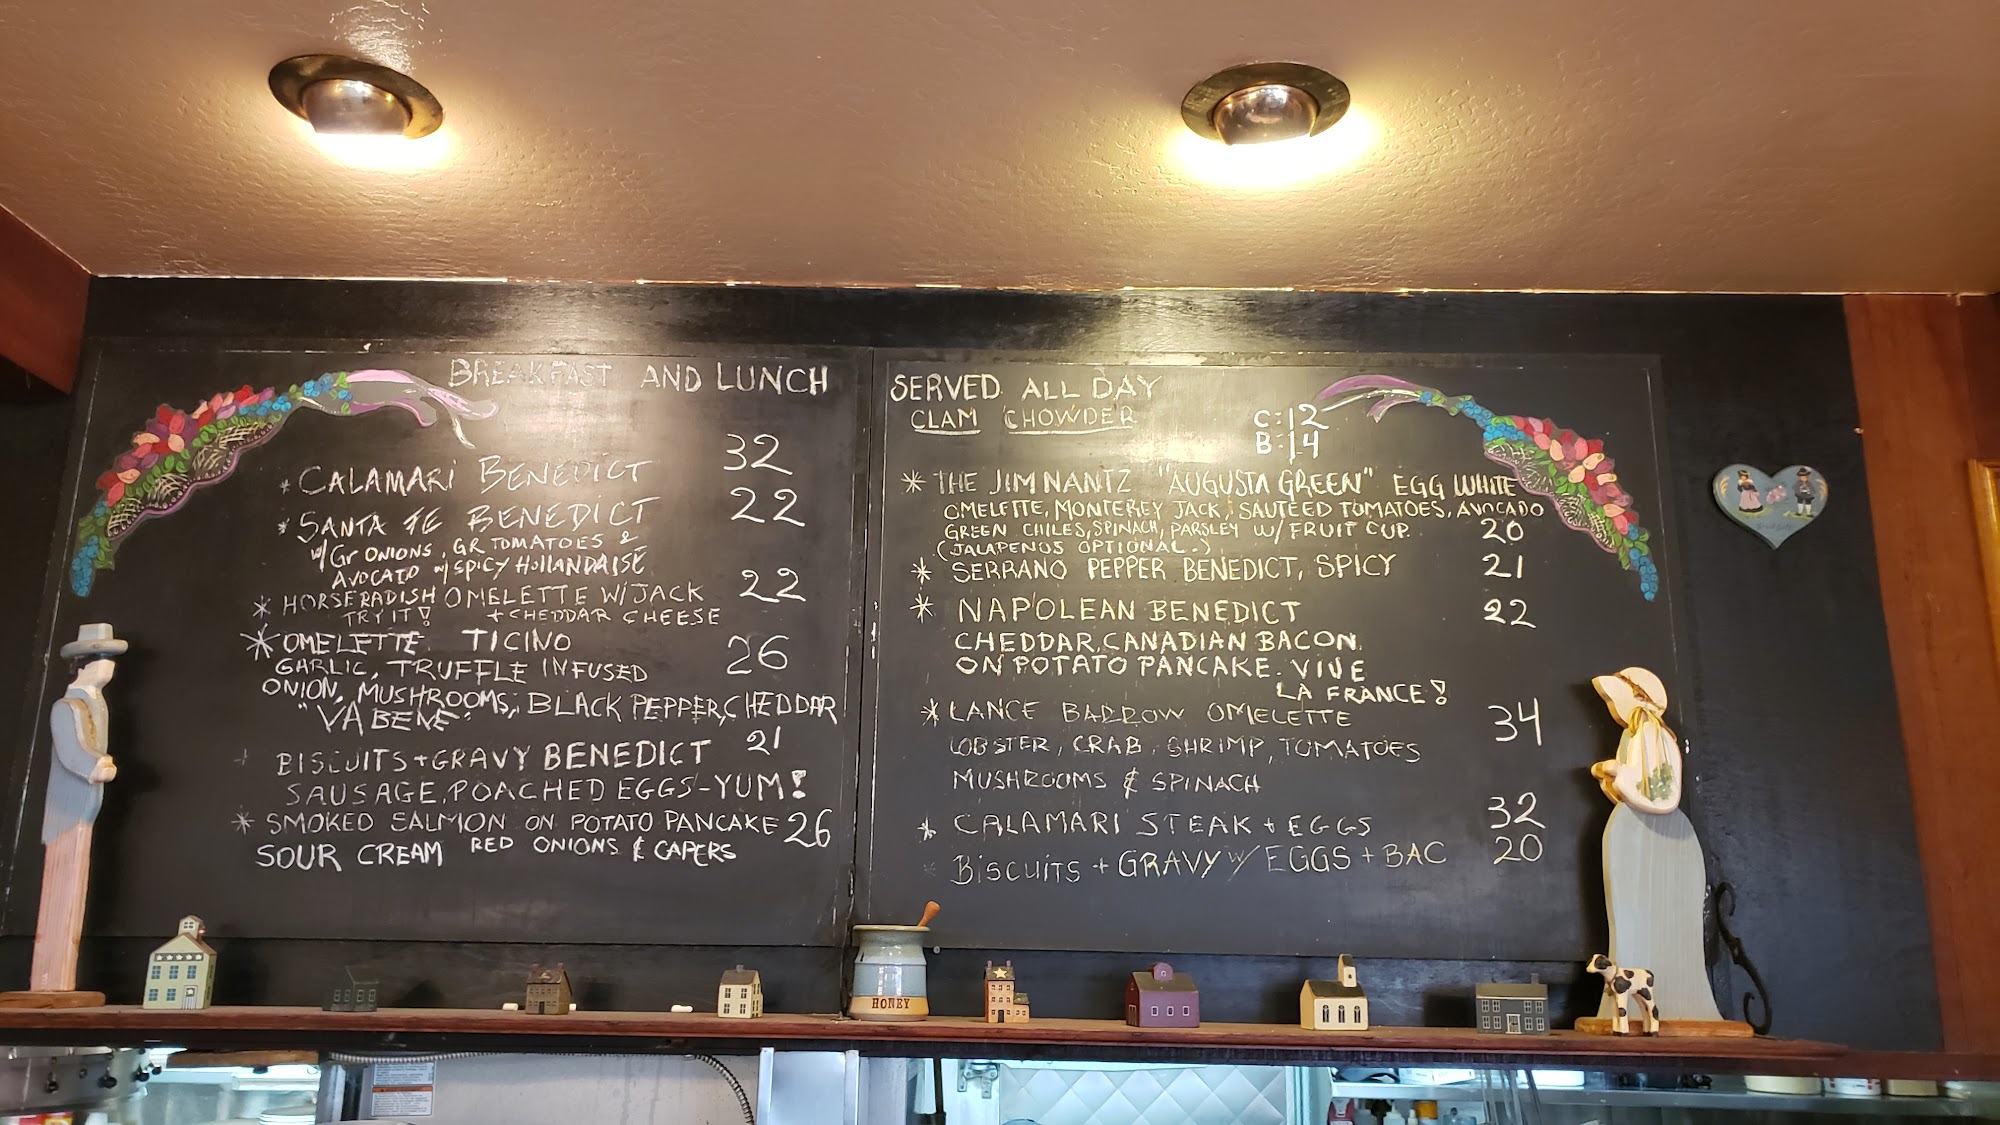 BREAKFAST AND LUNCH
* CALAMARI BENEDICT 32
* SANTA FE BENEDICT 22
W/ Gr ONIONS, GR TOMATOES &
AVOCATO W/ SPICY HOLLANDAISE
* HORSERADISH OMELETTE W/ JACK 22
TRY IT! + CHEDDAR CHEESE
* OMELETTE TICINO 26
GARLIC, TRUFFLE INFUSED
ONION, MUSHROOMS, BLACK PEPPER, CHEDDAR
"VA BENE"
BISCUITS + GRAVY BENEDICT 21
SAUSAGE, POACHED EGGS - YUM!
* SMOKED SALMON ON POTATO PANCAKE 26
SOUR CREAM RED ONIONS & CAPERS
SERVED ALL DAY
CLAM CHOWDER C: 12
B: 14
* THE JIM NANTZ "AUGUSTA GREEN" EGG WHITE
OMELETTE, MONTEREY JACK, SAUTEED TOMATOES, AVOCADO
GREEN CHILES, SPINACH, PARSLEY W/ FRUIT CUP. 20
(JALAPENOS OPTIONAL.)
* SERRANO PEPPER BENEDICT, SPICY 21
* NAPOLEAN BENEDICT 22
CHEDDAR, CANADIAN BACON
ON POTATO PANCAKE. VIVE
LA FRANCE!
* LANCE BARROW OMELETTE 34
LOBSTER, CRAB, SHRIMP, TOMATOES
MUSHROOMS & SPINACH
* CALAMARI STEAK + EGGS 32
* BISCUITS + GRAVY W/ EGGS + BAC 20
HONEY